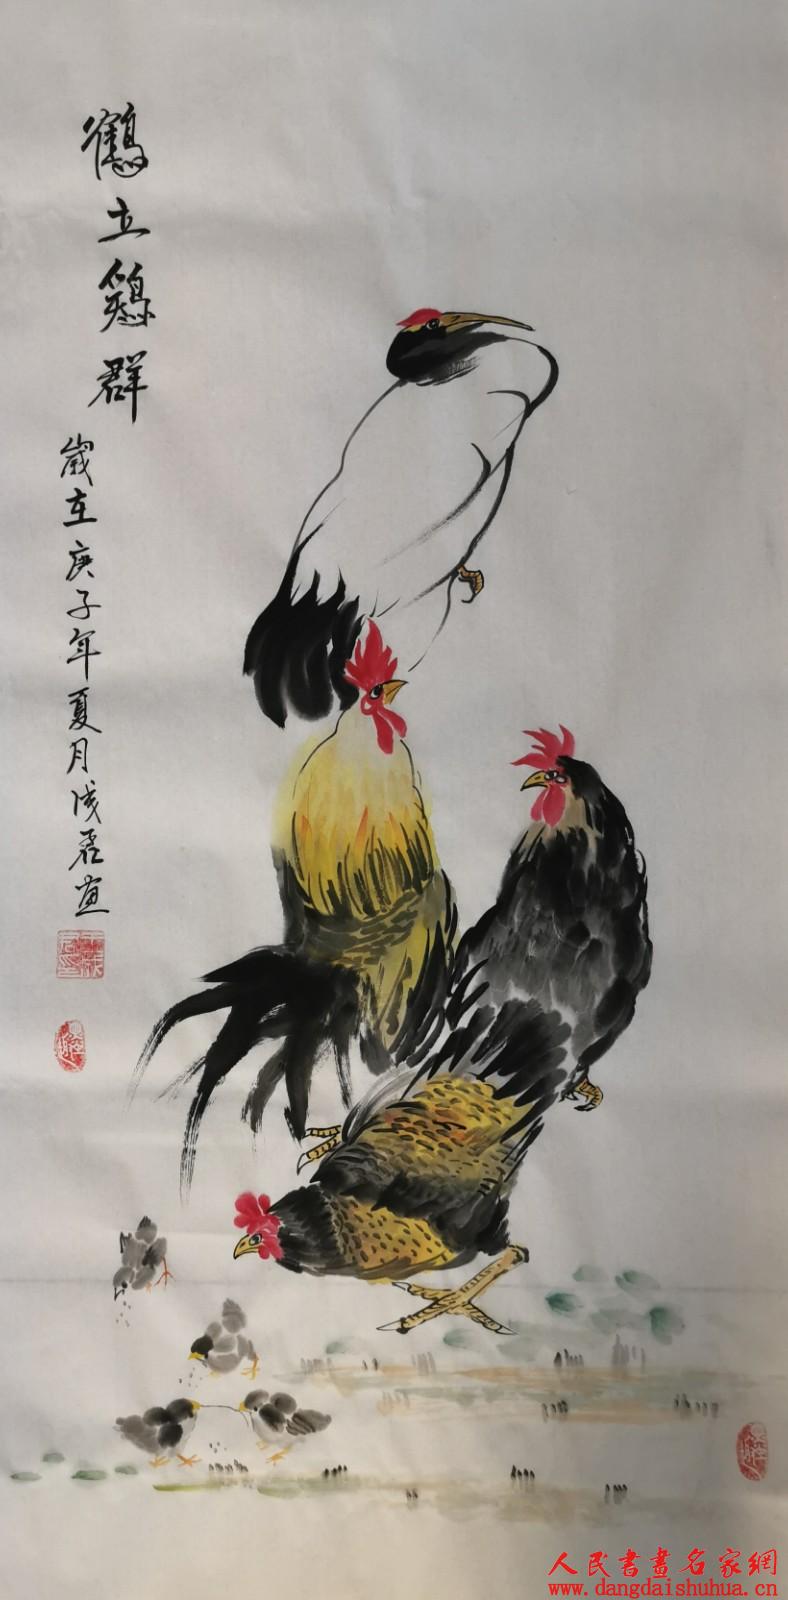 鶴立鷄群
歲在庚子年夏月成君画
人民書畫名家網
www.dangdaishuhua.cn